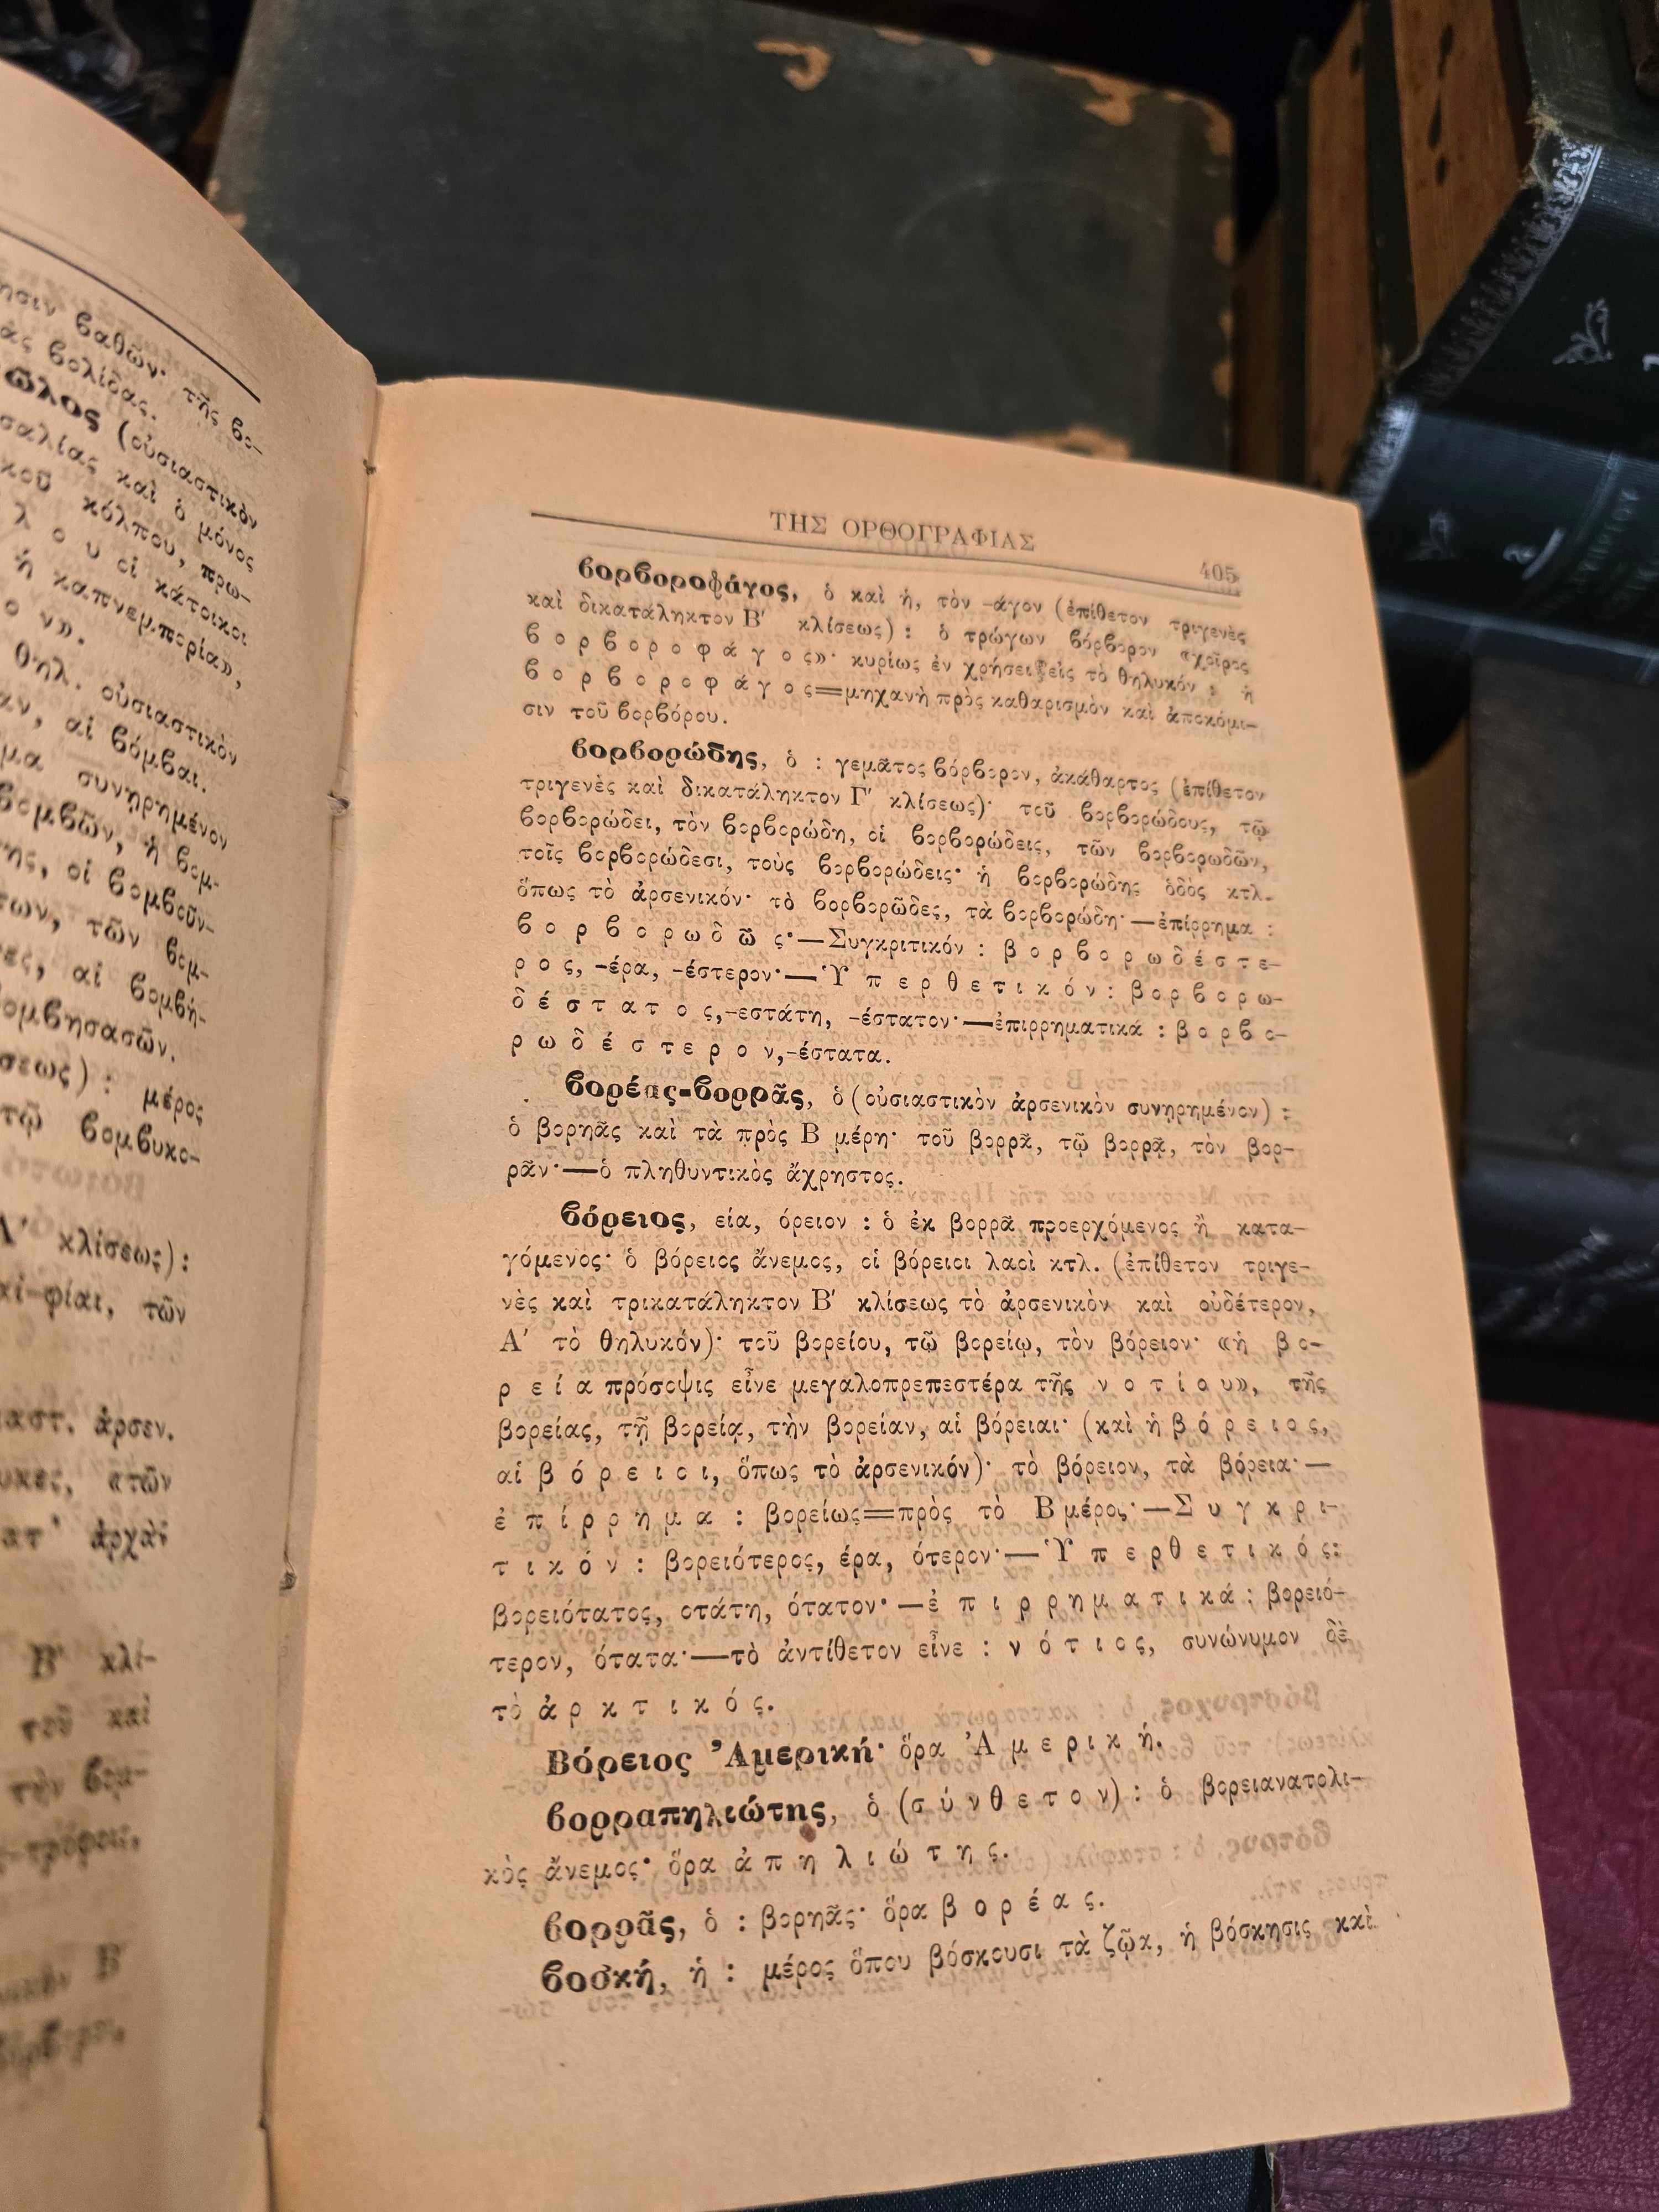 ησιν βαθῶν· τῆς βο-
ὰς βολίδας.
ῶλος (οὐσιαστικὸν
σαλίας καὶ ὁ μόνος
κοῦ κόλπου, πρω-
λ ο υ οἱ κάτοικοι
ἡ καπνεμπορία»,
ο ν».
θηλ. οὐσιαστικὸν
αν, αἱ βόμβαι.
μα συνῃρημένον
βομβῶν, ἡ βομ-
της, οἱ βομβοῦν-
των, τῶν βομ-
ες, αἱ βομβή-
βομβησασῶν.
σεως) : μέρος
τῷ βομβυκο-
Α′ κλίσεως) :
αἱ -φίαι, τῶν
ιαστ. ἀρσεν.
υκες, «τῶν
ατ' ἀρχὰς
Β′ κλί-
τοῦ καὶ
τὴν βομ-
Β′
ΤΗΣ ΟΡΘΟΓΡΑΦΙΑΣ
405
βορβοροφάγος, ὁ καὶ ἡ, τὸν -άγον (ἐπίθετον τριγενὲς
καὶ δικατάληκτον Β′ κλίσεως) : ὁ τρώγων βόρβορον «χοῖρος
β ο ρ β ο ρ ο φ ά γ ο ς»· κυρίως ἐν χρήσει εἰς τὸ θηλυκόν : ἡ
β ο ρ β ο ρ ο φ ά γ ο ς=μηχανὴ πρὸς καθαρισμὸν καὶ ἀποκόμι-
σιν τοῦ βορβόρου.
βορβορώδης, ὁ : γεμᾶτος βόρβορον, ἀκάθαρτος (ἐπίθετον
τριγενὲς καὶ δικατάληκτον Γ′ κλίσεως)· τοῦ βορβορώδους, τῷ
βορβορώδει, τὸν βορβορώδη, οἱ βορβορώδεις, τῶν βορβορωδῶν,
τοῖς βορβορώδεσι, τοὺς βορβορώδεις· ἡ βορβορώδης ὁδὸς κτλ.
ὅπως τὸ ἀρσενικόν· τὸ βορβορῶδες, τὰ βορβορώδη·—ἐπίρρημα :
β ο ρ β ο ρ ω δ ῶ ς·—Συγκριτικόν : β ο ρ β ο ρ ω δ έ σ τ ε-
ρ ο ς, -έρα, -έστερον·—Ὑ π ε ρ θ ε τ ι κ ό ν : β ο ρ β ο ρ ω-
δ έ σ τ α τ ο ς,-εστάτη, -έστατον·—ἐπιρρηματικά : β ο ρ β ο-
ρ ω δ έ σ τ ε ρ ο ν,-έστατα.
βορέας-βορρᾶς, ὁ (οὐσιαστικὸν ἀρσενικὸν συνῃρημένον) :
ὁ βορηᾶς καὶ τὰ πρὸς Β μέρη· τοῦ βορρᾶ, τῷ βορρᾷ, τὸν βορ-
ρᾶν·—ὁ πληθυντικὸς ἄχρηστος.
βόρειος, εία, όρειον : ὁ ἐκ βορρᾶ προερχόμενος ἢ κατα-
γόμενος· ὁ βόρειος ἄνεμος, οἱ βόρειοι λαοὶ κτλ. (ἐπίθετον τριγε-
νὲς καὶ τρικατάληκτον Β′ κλίσεως τὸ ἀρσενικὸν καὶ οὐδέτερον,
Α′ τὸ θηλυκόν)· τοῦ βορείου, τῷ βορείῳ, τὸν βόρειον· «ἡ β ο-
ρ ε ί α πρόσοψις εἶνε μεγαλοπρεπεστέρα τῆς ν ο τ ί ο υ», τῆς
βορείας, τῇ βορείᾳ, τὴν βορείαν, αἱ βόρειαι· (καὶ ἡ β ό ρ ε ι ο ς,
αἱ β ό ρ ε ι ο ι, ὅπως τὸ ἀρσενικόν)· τὸ βόρειον, τὰ βόρεια·—
ἐ π ί ρ ρ η μ α : βορείως=πρὸς τὸ Β μέρος·—Σ υ γ κ ρ ι-
τ ι κ ό ν : βορειότερος, έρα, ότερον·—Ὑ π ε ρ θ ε τ ι κ ό ς:
βορειότατος, οτάτη, ότατον·—ἐ π ι ρ ρ η μ α τ ι κ ά : βορειό-
τερον, ότατα·—τὸ ἀντίθετον εἶνε : ν ό τ ι ο ς, συνώνυμον δὲ
τὸ ἀ ρ κ τ ι κ ό ς.
Βόρειος Ἀμερική· ὅρα Ἀ μ ε ρ ι κ ή.
βορραπηλιώτης, ὁ (σ ύ ν θ ε τ ο ν) : ὁ βορειανατολι-
κὸς ἄνεμος· ὅρα ἀ π η λ ι ώ τ η ς.
βορρᾶς, ὁ : βορηᾶς· ὅρα β ο ρ έ α ς.
βοσκή, ἡ : μέρος ὅπου βόσκουσι τὰ ζῷα, ἡ βόσκησις καὶ